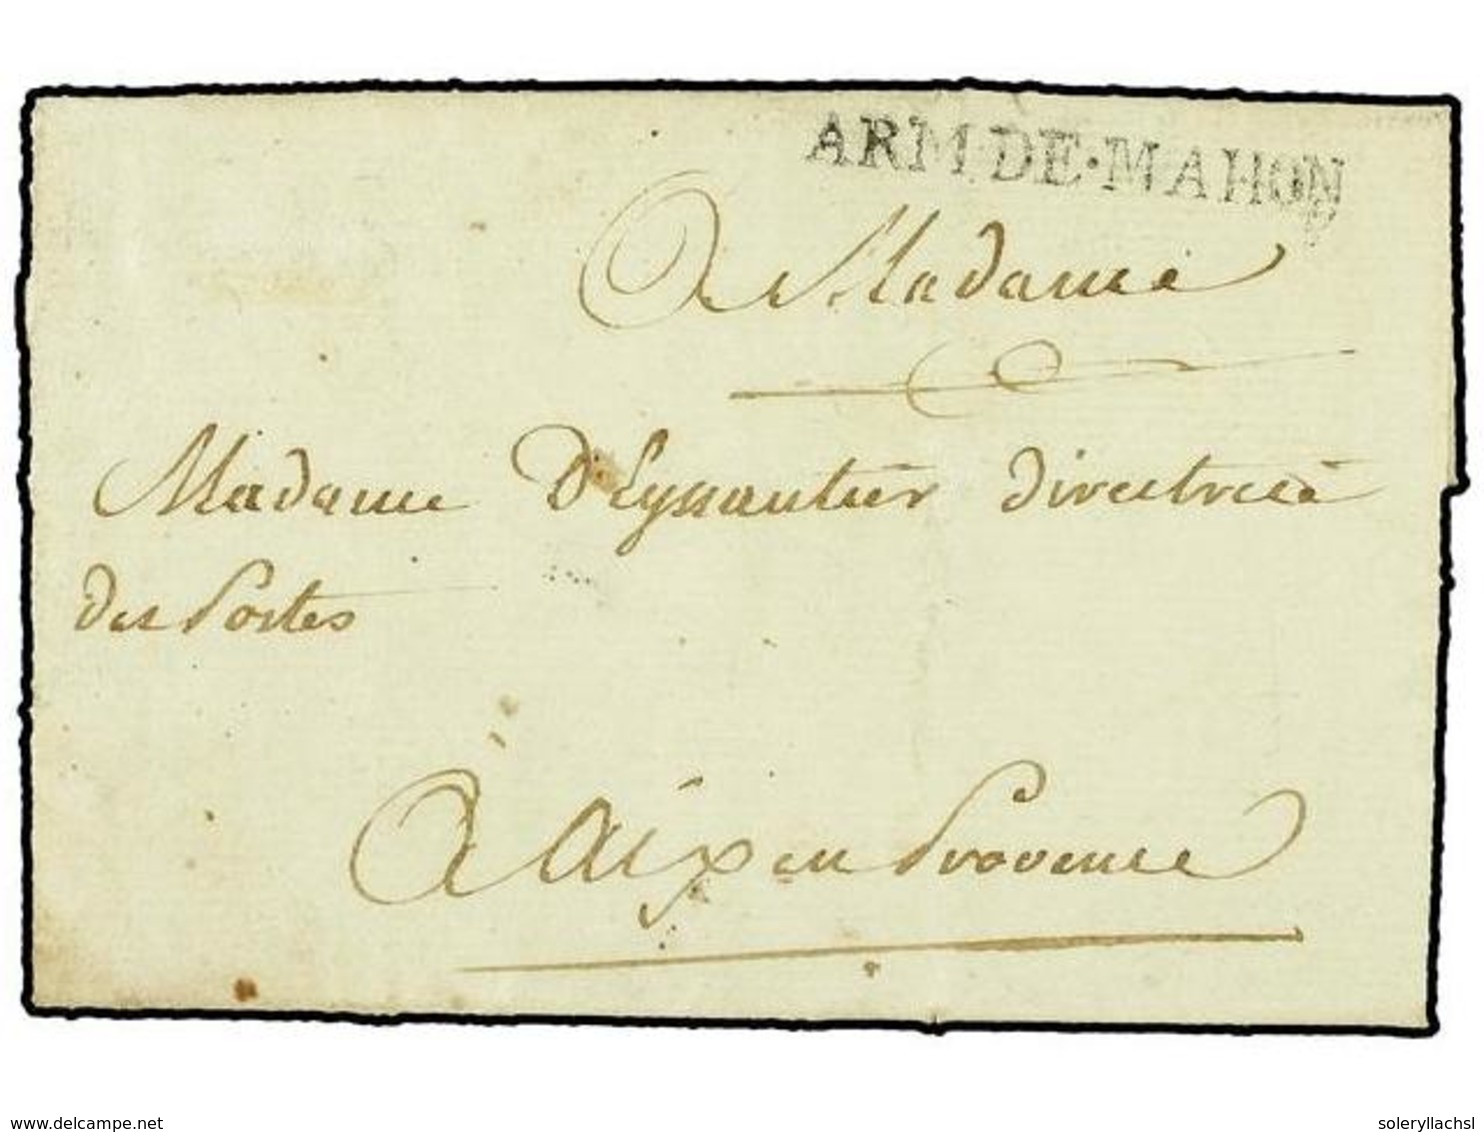 ARM·DE·MAHON
A Madame
Madame D'Eyssautier directrice
des Postes
A Aix en Provence
www.delcampe.net
soleryllachsl